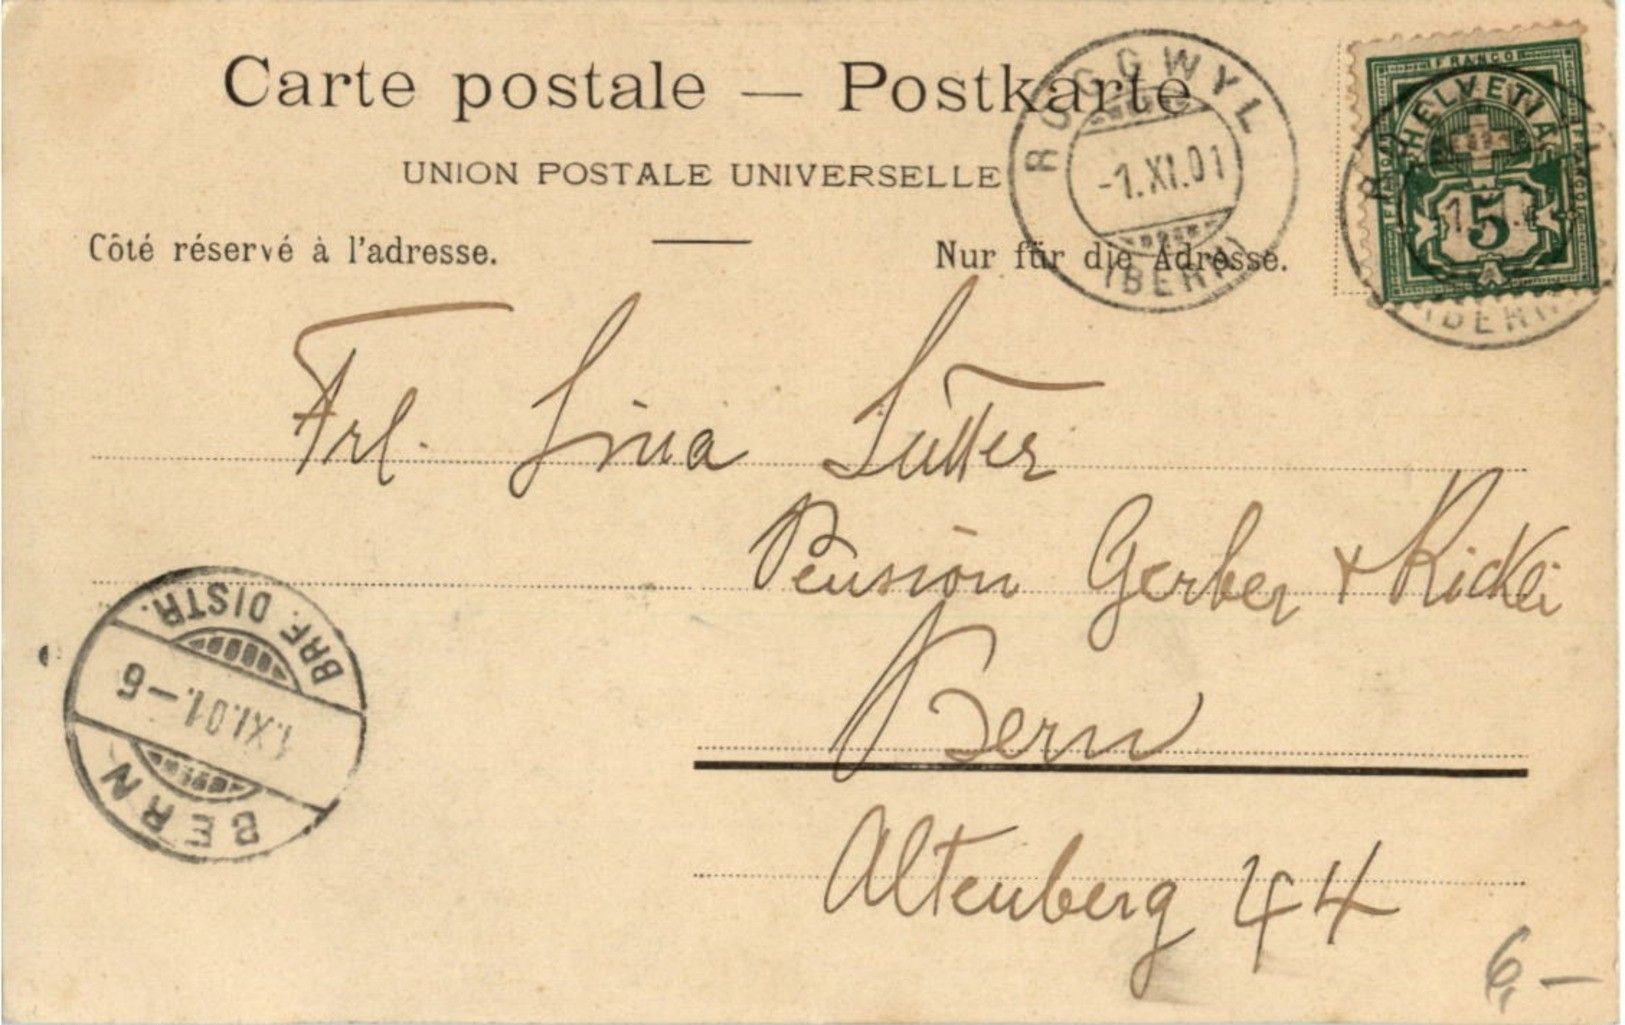 Carte postale — Postkarte
UNION POSTALE UNIVERSELLE
Côté réservé à l'adresse.
Nur für die Adresse.
ROGGWYL
-1.XI.01
(BERN)
FRANCO
HELVETIA
5
(BERN)
Frl. Lina Sutter
Pension Gerber + Rickli
Bern
Altenberg 44
BRF. DISTR.
1.XI.01.-6
BERN
6,-